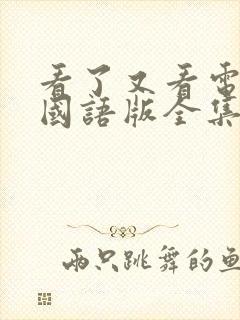 看了又看電
國語版全集
兩只跳舞的魚